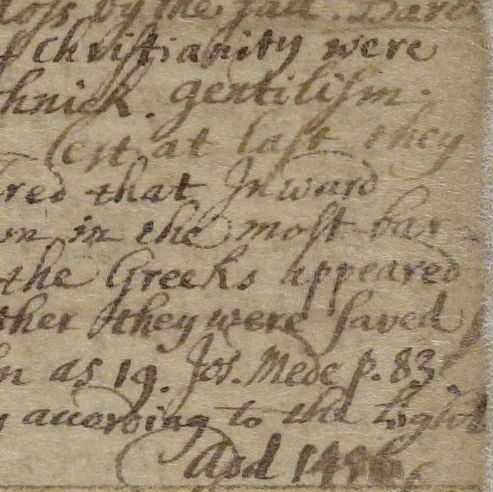 loss by the fall. Dark
christianity were
hnick. gentilism.
Cert. at last they
red that Inward
n in the most bar
the Greeks appeared
ther they were saved
n as 19. Jos. Mede p. 83
according to the